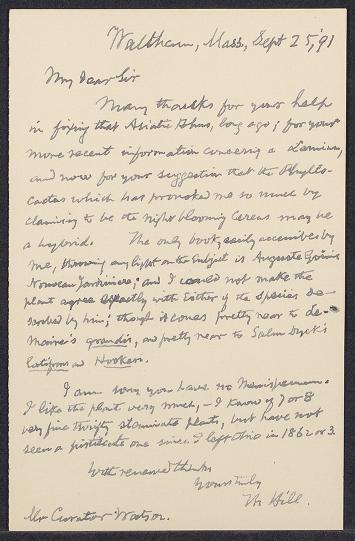 Waltham, Mass, Sept 25, '91
My Dear Sir
Many thanks for your help
in fixing that Asiatic Rhus, long ago; for your
more recent information concerning a Lamium,
and now for your suggestion that the Phyllo-
cactus which has provoked me so much by
claiming to be the Night blooming Cereus may be
a hybrid. The only book, easily accessible by
me, throwing any light on the subject is Auguste
Nouveau Jardinier; and I could not make the
plant agree exactly with Either of the Species de-
scribed by him; though it comes pretty near to de-
Maire's grandis, and pretty near to Salm Dyck's
latifrons and Hookeri.
I am sorry you have no Menispermum.
I like the plant very much, - I know of 7 or 8
very fine thrifty staminate plants, but have not
seen a pistillate one since I left Ohio in 1862 or 3.
With renewed thanks
Yours truly
Hill.
Mr Curator Watson.